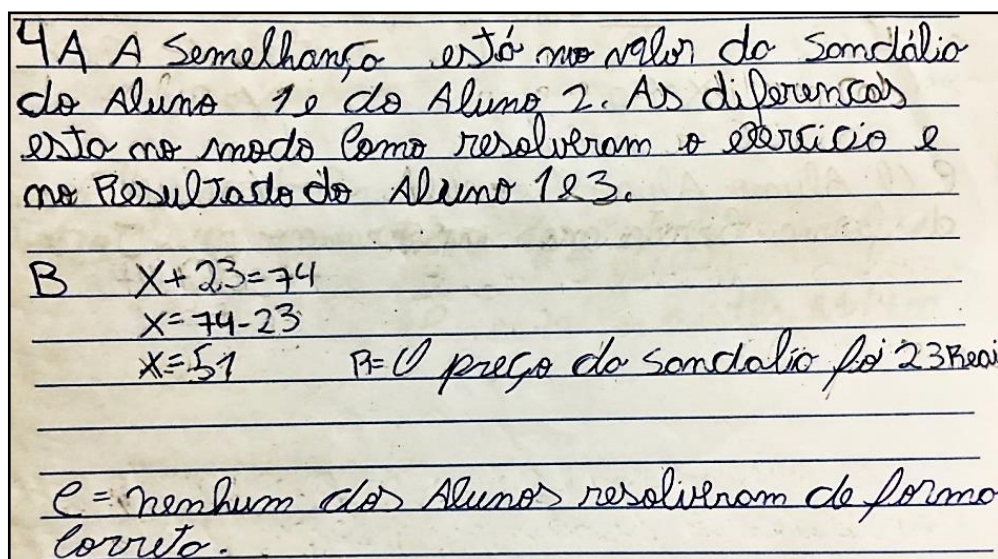 4A A Semelhança está no valor da Sandália
do Aluno 1 e do Aluno 2. As diferencas
esta no modo como resolveram o exercicio e
no Resultado do Aluno 1 e 3.
B X+23=74
X=74-23
X=51 R=O preço da Sandalia foi 23 Reai
C= nenhum dos Alunos resoliveram de forma
correta.